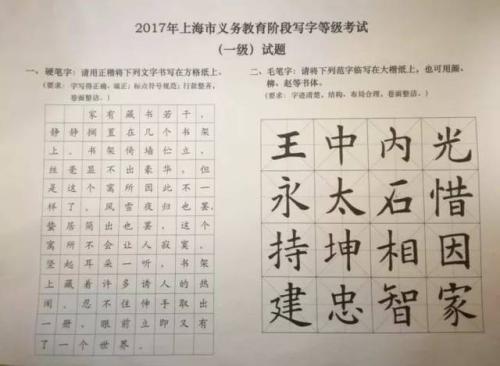 2017年上海市义务教育阶段写字等级考试
（一级）试题
一、硬笔字：请用正楷将下列文字书写在方格纸上。
（要求：字写得正确、端正；标点符号规范；行款整齐，
卷面整洁。）
家有藏书若干，
静静搁置在几个书架
上。书架倚墙伫立，
丝毫显不出豪华，但
是这个寓所因此不一
样了。风雪夜归也罢，
蛰居简出也罢，这个
寓所不会让人寂寞。
竖起耳朵一听，书架
上藏着许多诱人的热
闹。忍不住伸手取出
一册，眼前立即又有
了一个世界。
二、毛笔字：请将下列范字临写在大楷纸上，也可用颜、
柳、赵等书体。
（要求：字迹清楚，结构、布局合理，卷面整洁。）
王中内光
永太石惜
持坤相因
建忠智家